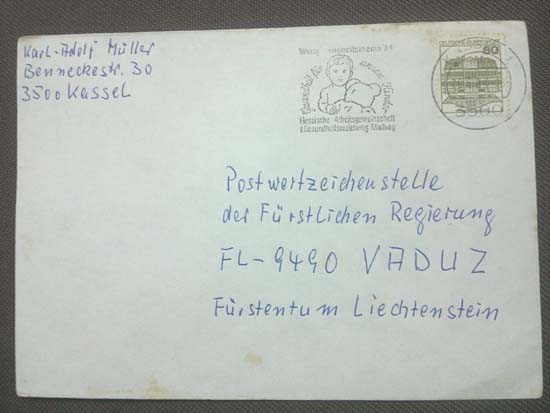 Karl-Adolf Müller
Benneckestr. 30
3500 Kassel
DEUTSCHE BUNDESPOST
80
Gesundheit für unsere Kinder
Hessische Arbeitsgemeinschaft
f. Gesundheitserziehung Marburg
Postwertzeichenstelle
der Fürstlichen Regierung
FL-9490 VADUZ
Fürstentum Liechtenstein